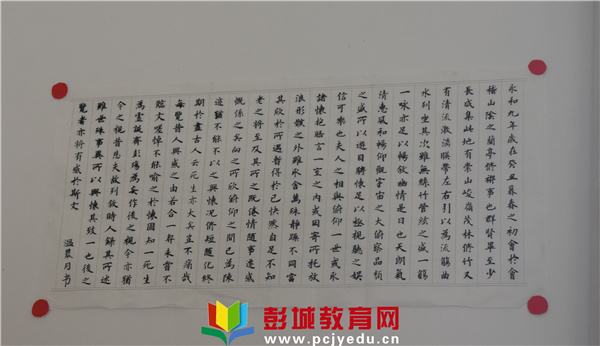 永和九年歲在癸丑暮春之初會於會
稽山陰之蘭亭脩禊事也群賢畢至少
長咸集此地有崇山峻嶺茂林脩竹又
有清流激湍暎帶左右引以為流觴曲
水列坐其次雖無絲竹管絃之盛一觴
一詠亦足以暢敘幽情是日也天朗氣
清惠風和暢仰觀宇宙之大俯察品類
之盛所以遊目騁懷足以極視聽之娛
信可樂也夫人之相與俯仰一世或取
諸懷抱悟言一室之內或因寄所托放
浪形骸之外雖取舍萬殊靜躁不同當
其欣於所遇暫得於己快然自足不知
老之將至及其所之既倦情隨事遷感
慨係之矣向之所欣俯仰之間已為陳
迹猶不能不以之興懷況脩短隨化終
期於盡古人云死生亦大矣豈不痛哉
每覽昔人興感之由若合一契未嘗不
臨文嗟悼不能喻之於懷固知一死生
為虛誕齊彭殤為妄作後之視今亦猶
今之視昔悲夫故列敘時人錄其所述
雖世殊事異所以興懷其致一也後之
覽者亦將有感於斯文
温晨月书
彭城教育网
www.pcjyedu.cn